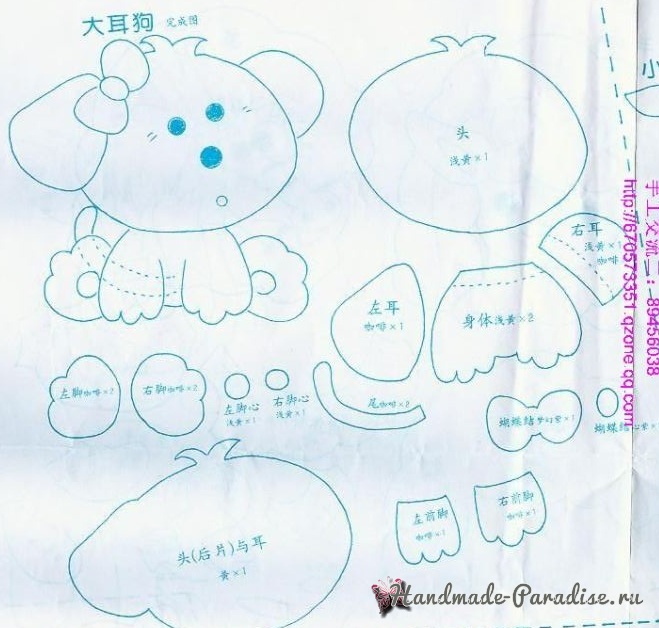 大耳狗 完成图
小
头
浅黄×1
右耳
浅黄×1
咖啡
左耳
咖啡×1
身体浅黄×2
左脚咖啡×2
右脚咖啡×2
左脚心
浅黄×1
右脚心
浅黄×1
尾咖啡×2
蝴蝶结梦幻紫×1
蝴蝶结心紫×1
左前脚
咖啡×1
右前脚
咖啡×1
头(后片)与耳
黄×1
手工交流
: 89456038
http://670573351.qzone.qq.com
Handmade-Paradise.ru